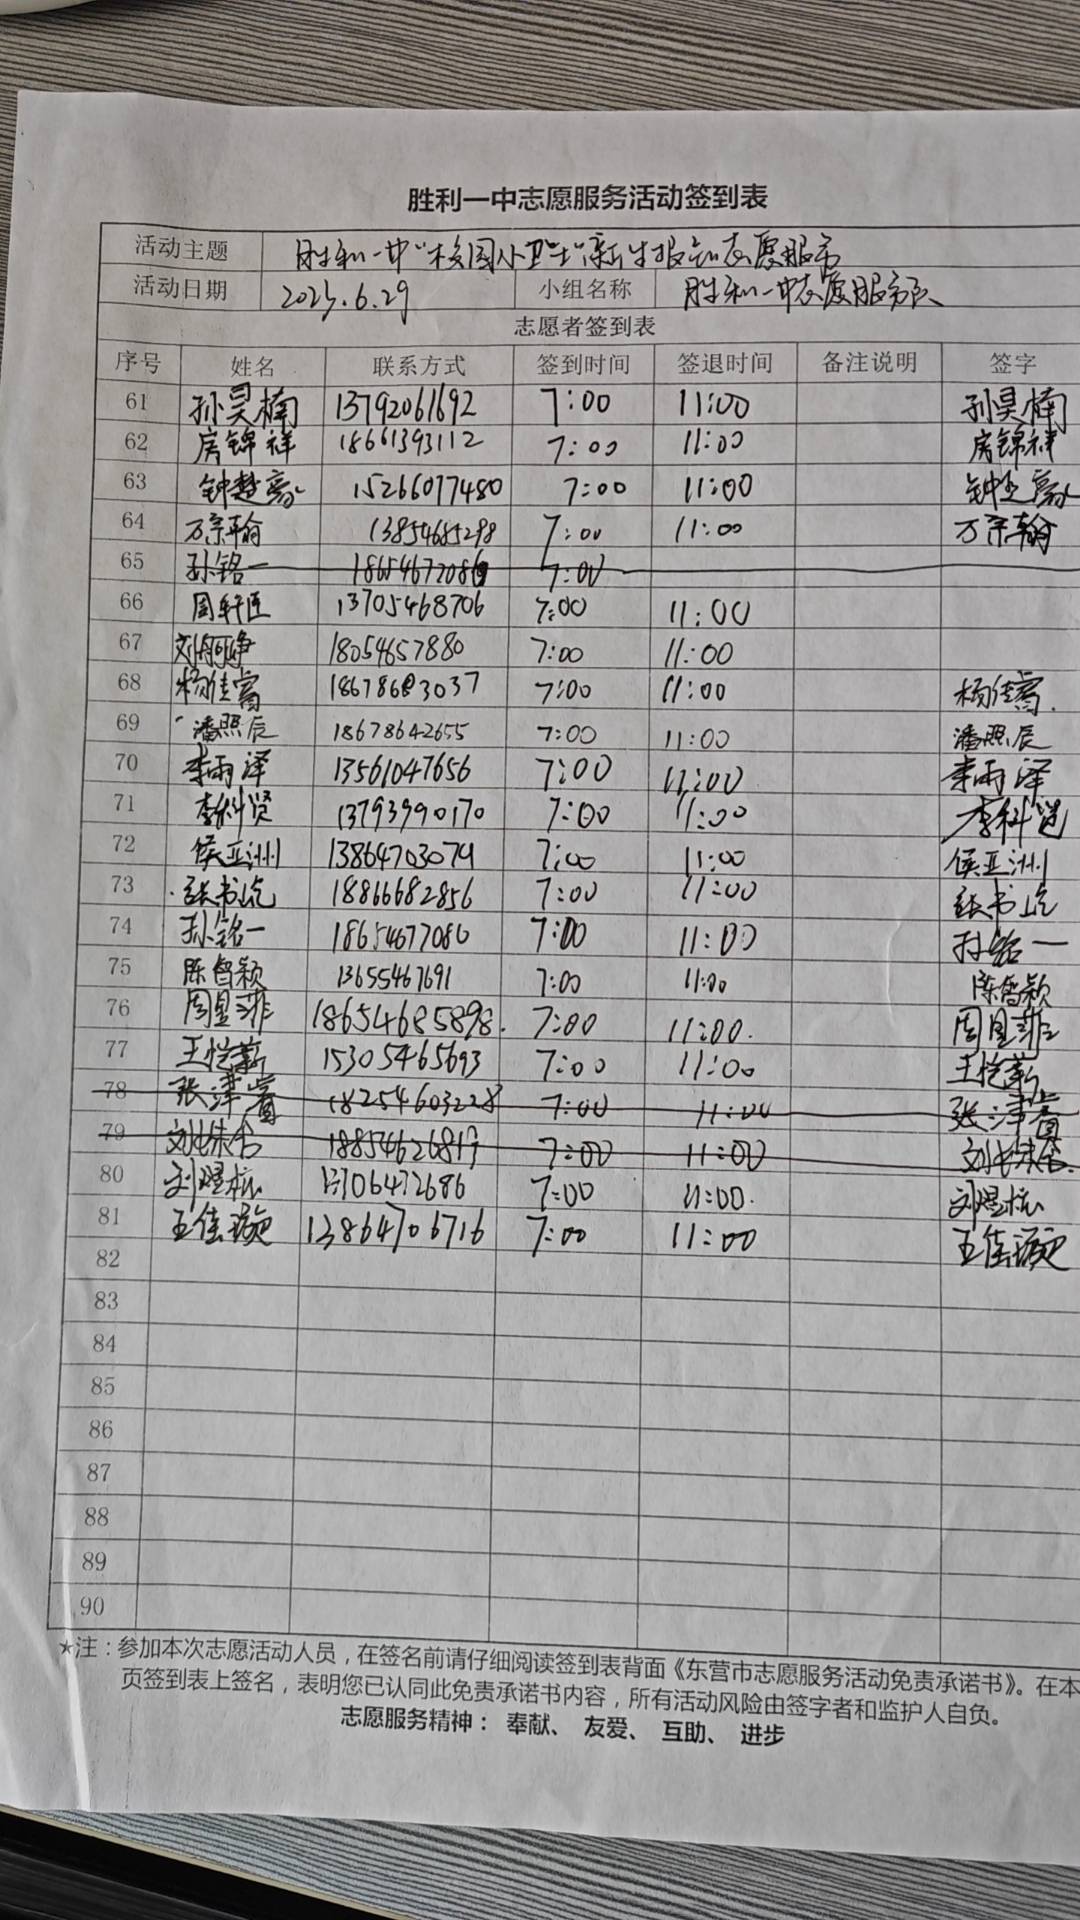 胜利一中志愿服务活动签到表
活动主题 胜利一中“校园小卫士”新生报到志愿服务
活动日期 2025.6.29 小组名称 胜利一中志愿服务队
志愿者签到表
序号 姓名 联系方式 签到时间 签退时间 备注说明 签字
61 孙昊楠 13792061692 7:00 11:00 孙昊楠
62 房锦祥 18661393112 7:00 11:00 房锦祥
63 钟楚豪 15266077480 7:00 11:00 钟楚豪
64 万宗翰 13854685298 7:00 11:00 万宗翰
65 孙铭一 7:00
66 周轩匠 13705468706 7:00 11:00
67 刘舸峥 18054657880 7:00 11:00
68 杨佳睿 7:00 11:00 杨佳睿.
69 潘熙辰 18678642655 7:00 11:00 潘熙辰
70 李雨泽 13561047656 7:00 11:00 李雨泽
71 李科贤 13793990170 7:00 11:00 李科贤
72 侯亚洲 13864703079 7:00 11:00 侯亚洲
73 张书屹 18866682856 7:00 11:00 张书屹
74 孙铭一 18654677086 7:00 11:00 孙铭一
75 陈智颖 13655467691 7:00 11:00 陈智颖
76 周星菲 18654685898. 7:00 11:00. 周星菲
77 王恺薪 15305465693 7:00 11:00 王恺薪
78 张津睿 18254603228 7:00 11:00 张津睿
79 18854626817 7:00 11:00
80 刘煜栋 7:00 11:00. 刘煜栋
81 王佳璇 13864706716 7:00 11:00 王佳璇
82
83
84
85
86
87
88
89
90
★注：参加本次志愿活动人员，在签名前请仔细阅读签到表背面《东营市志愿服务活动免责承诺书》。在本
页签到表上签名，表明您已认同此免责承诺书内容，所有活动风险由签字者和监护人自负。
志愿服务精神： 奉献、 友爱、 互助、 进步